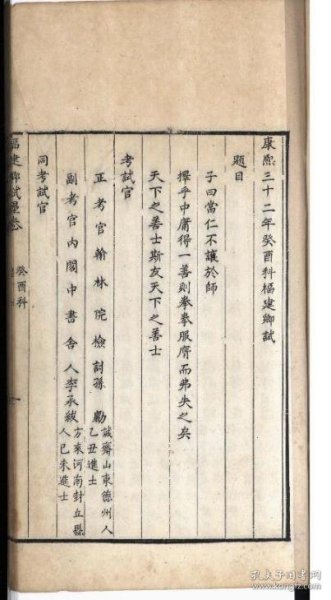 康熙三十二年癸酉科福建鄉試
題目
子曰當仁不讓於師
擇乎中庸得一善則拳拳服膺而弗失之矣
天下之善士斯友天下之善士
考試官
正考官翰林院檢討孫勷
誠齋山東德州人
乙丑進士
副考官內閣中書舍人李承紱
方來河南封丘縣
人己未進士
同考試官
福建鄉試
癸酉科
孔夫子舊書網
www.kongfz.com